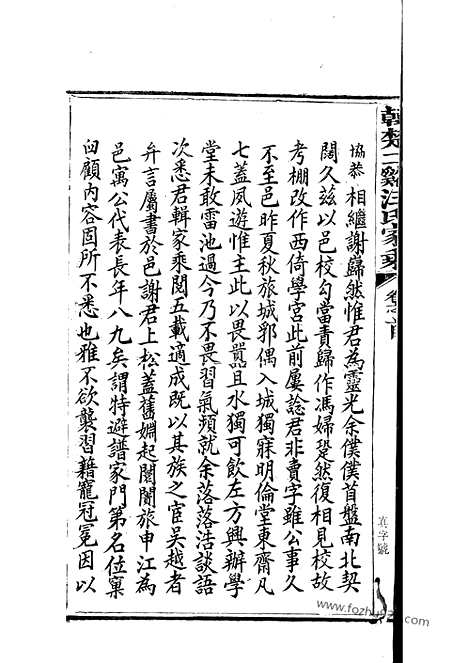 協恭相繼謝巋然惟君為靈光余僕僕首盤南北契
闊久茲以邑校勾當責歸作馮婦跫然復相見校故
考棚改作西倚學宮此前屢諗君非賣字雖公事久
不至邑昨夏秋旅城郛偶入城獨寐明倫堂東齋凡
七蓋夙遊惟主此以畏囂且水獨可飲左方興辦學
堂未敢雷池過今乃不畏習氣頻就余落落浩談語
次悉君輯家乘閱五載適成既以其族之宦吳越者
弁言屬書於邑謝君上松蓋舊姻起閥閱旅申江為
邑寓公代表長年八九矣謂特避譜家門第名位窠
臼顧內容固所不悉也雅不欲襲習藉寵冠冕因以
韓楚二溪汪氏家乘
卷首
真字號
www.fozhu920.com